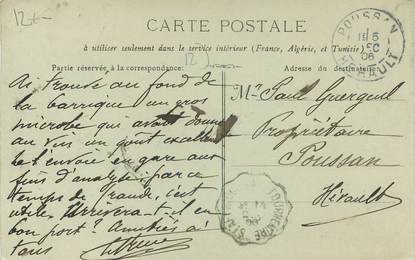 12
CARTE POSTALE
à utiliser seulement dans le service intérieur (France, Algérie, et Tunisie)
Partie réservée à la correspondance
12
Adresse du destinataire
POUSSAN
HERAULT
06
Ai trouvé au fond de
la barrique un gros
microbe qui avait donné
au vin un goût excellent
l'envoie en gare aux
fins d'analyse; par ce
temps de fraude, c'est
utile. Arrivera-t-il en
bon port? Amitiés à
tous
Mr Paul
Propriétaire
Poussan
Hérault